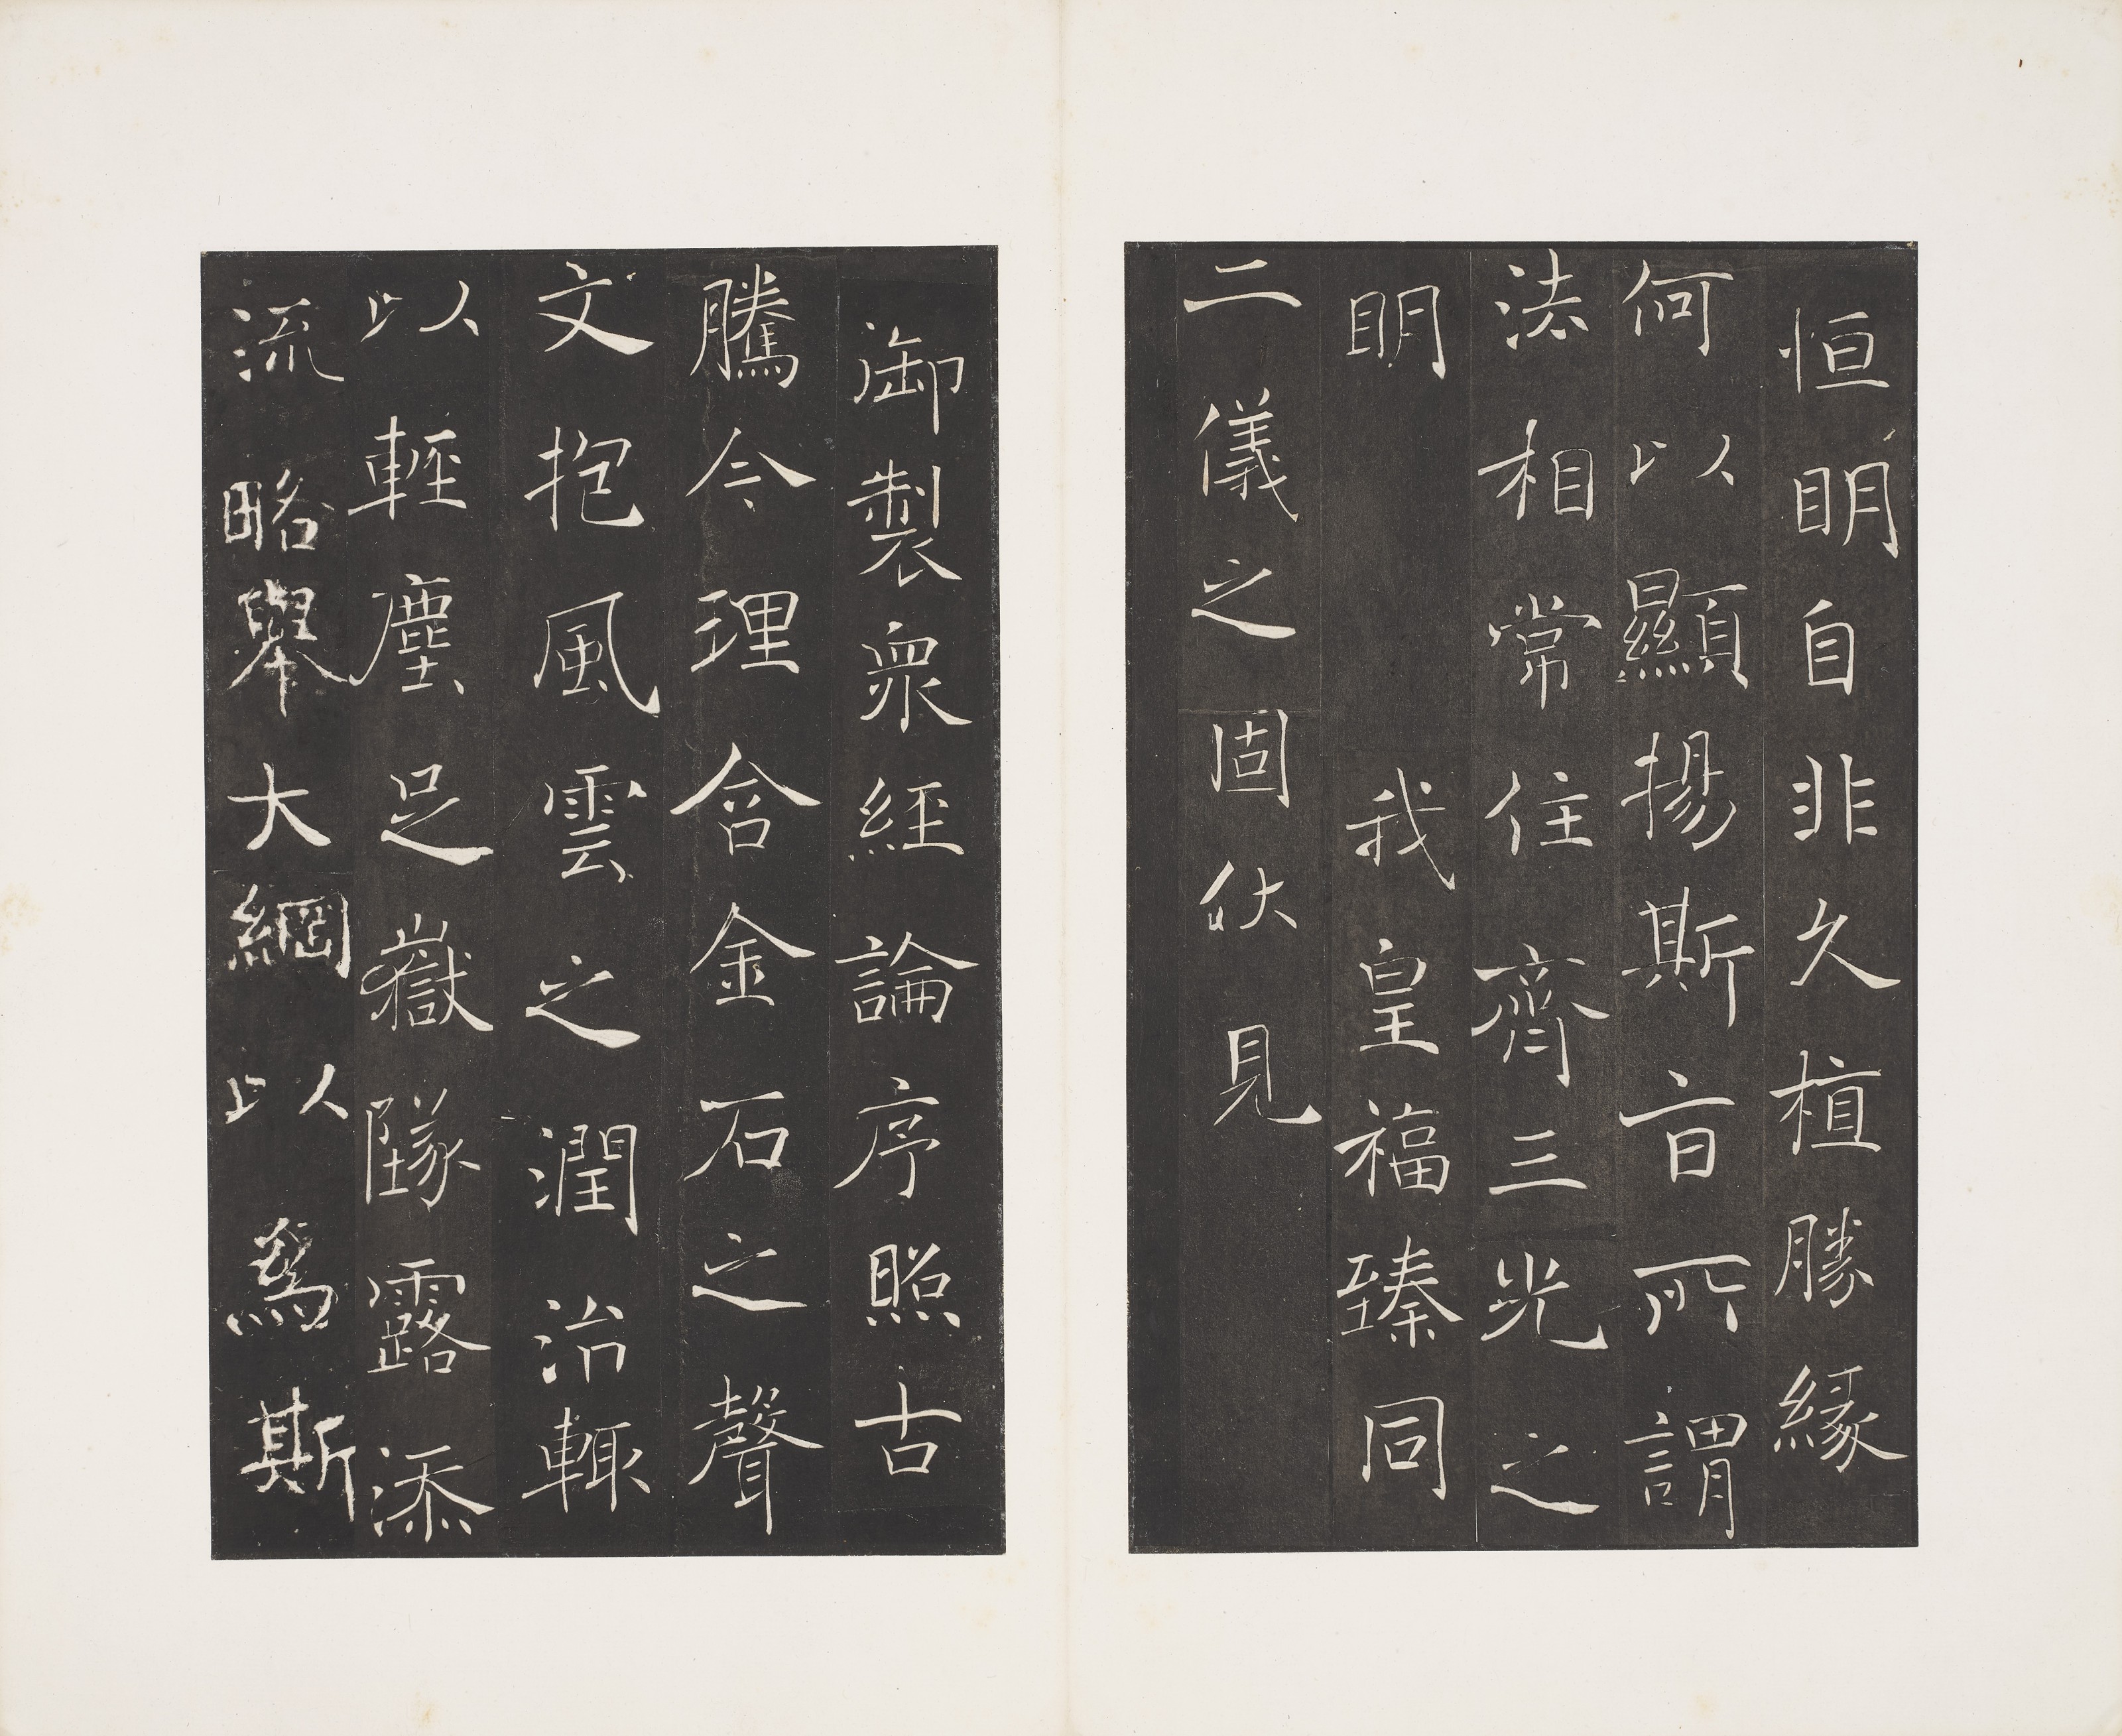 恒明自非久植勝緣
何以顯揚斯旨所謂
法相常住齊三光之
明我皇福臻同
二儀之固伏見
御製衆經論序照古
騰今理含金石之聲
文抱風雲之潤治輙
以輕塵足嶽墜露添
流略舉大綱以爲斯